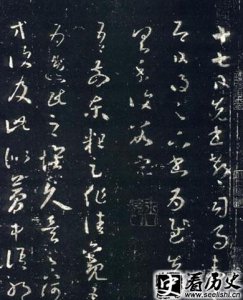 十七日先書郗司馬未
即日得足下書為慰先
以具示復數字
吾前東粗足作佳觀
為逸民之懷久矣足
以方復及此似夢中語耶
看历史
www.seelishi.cn